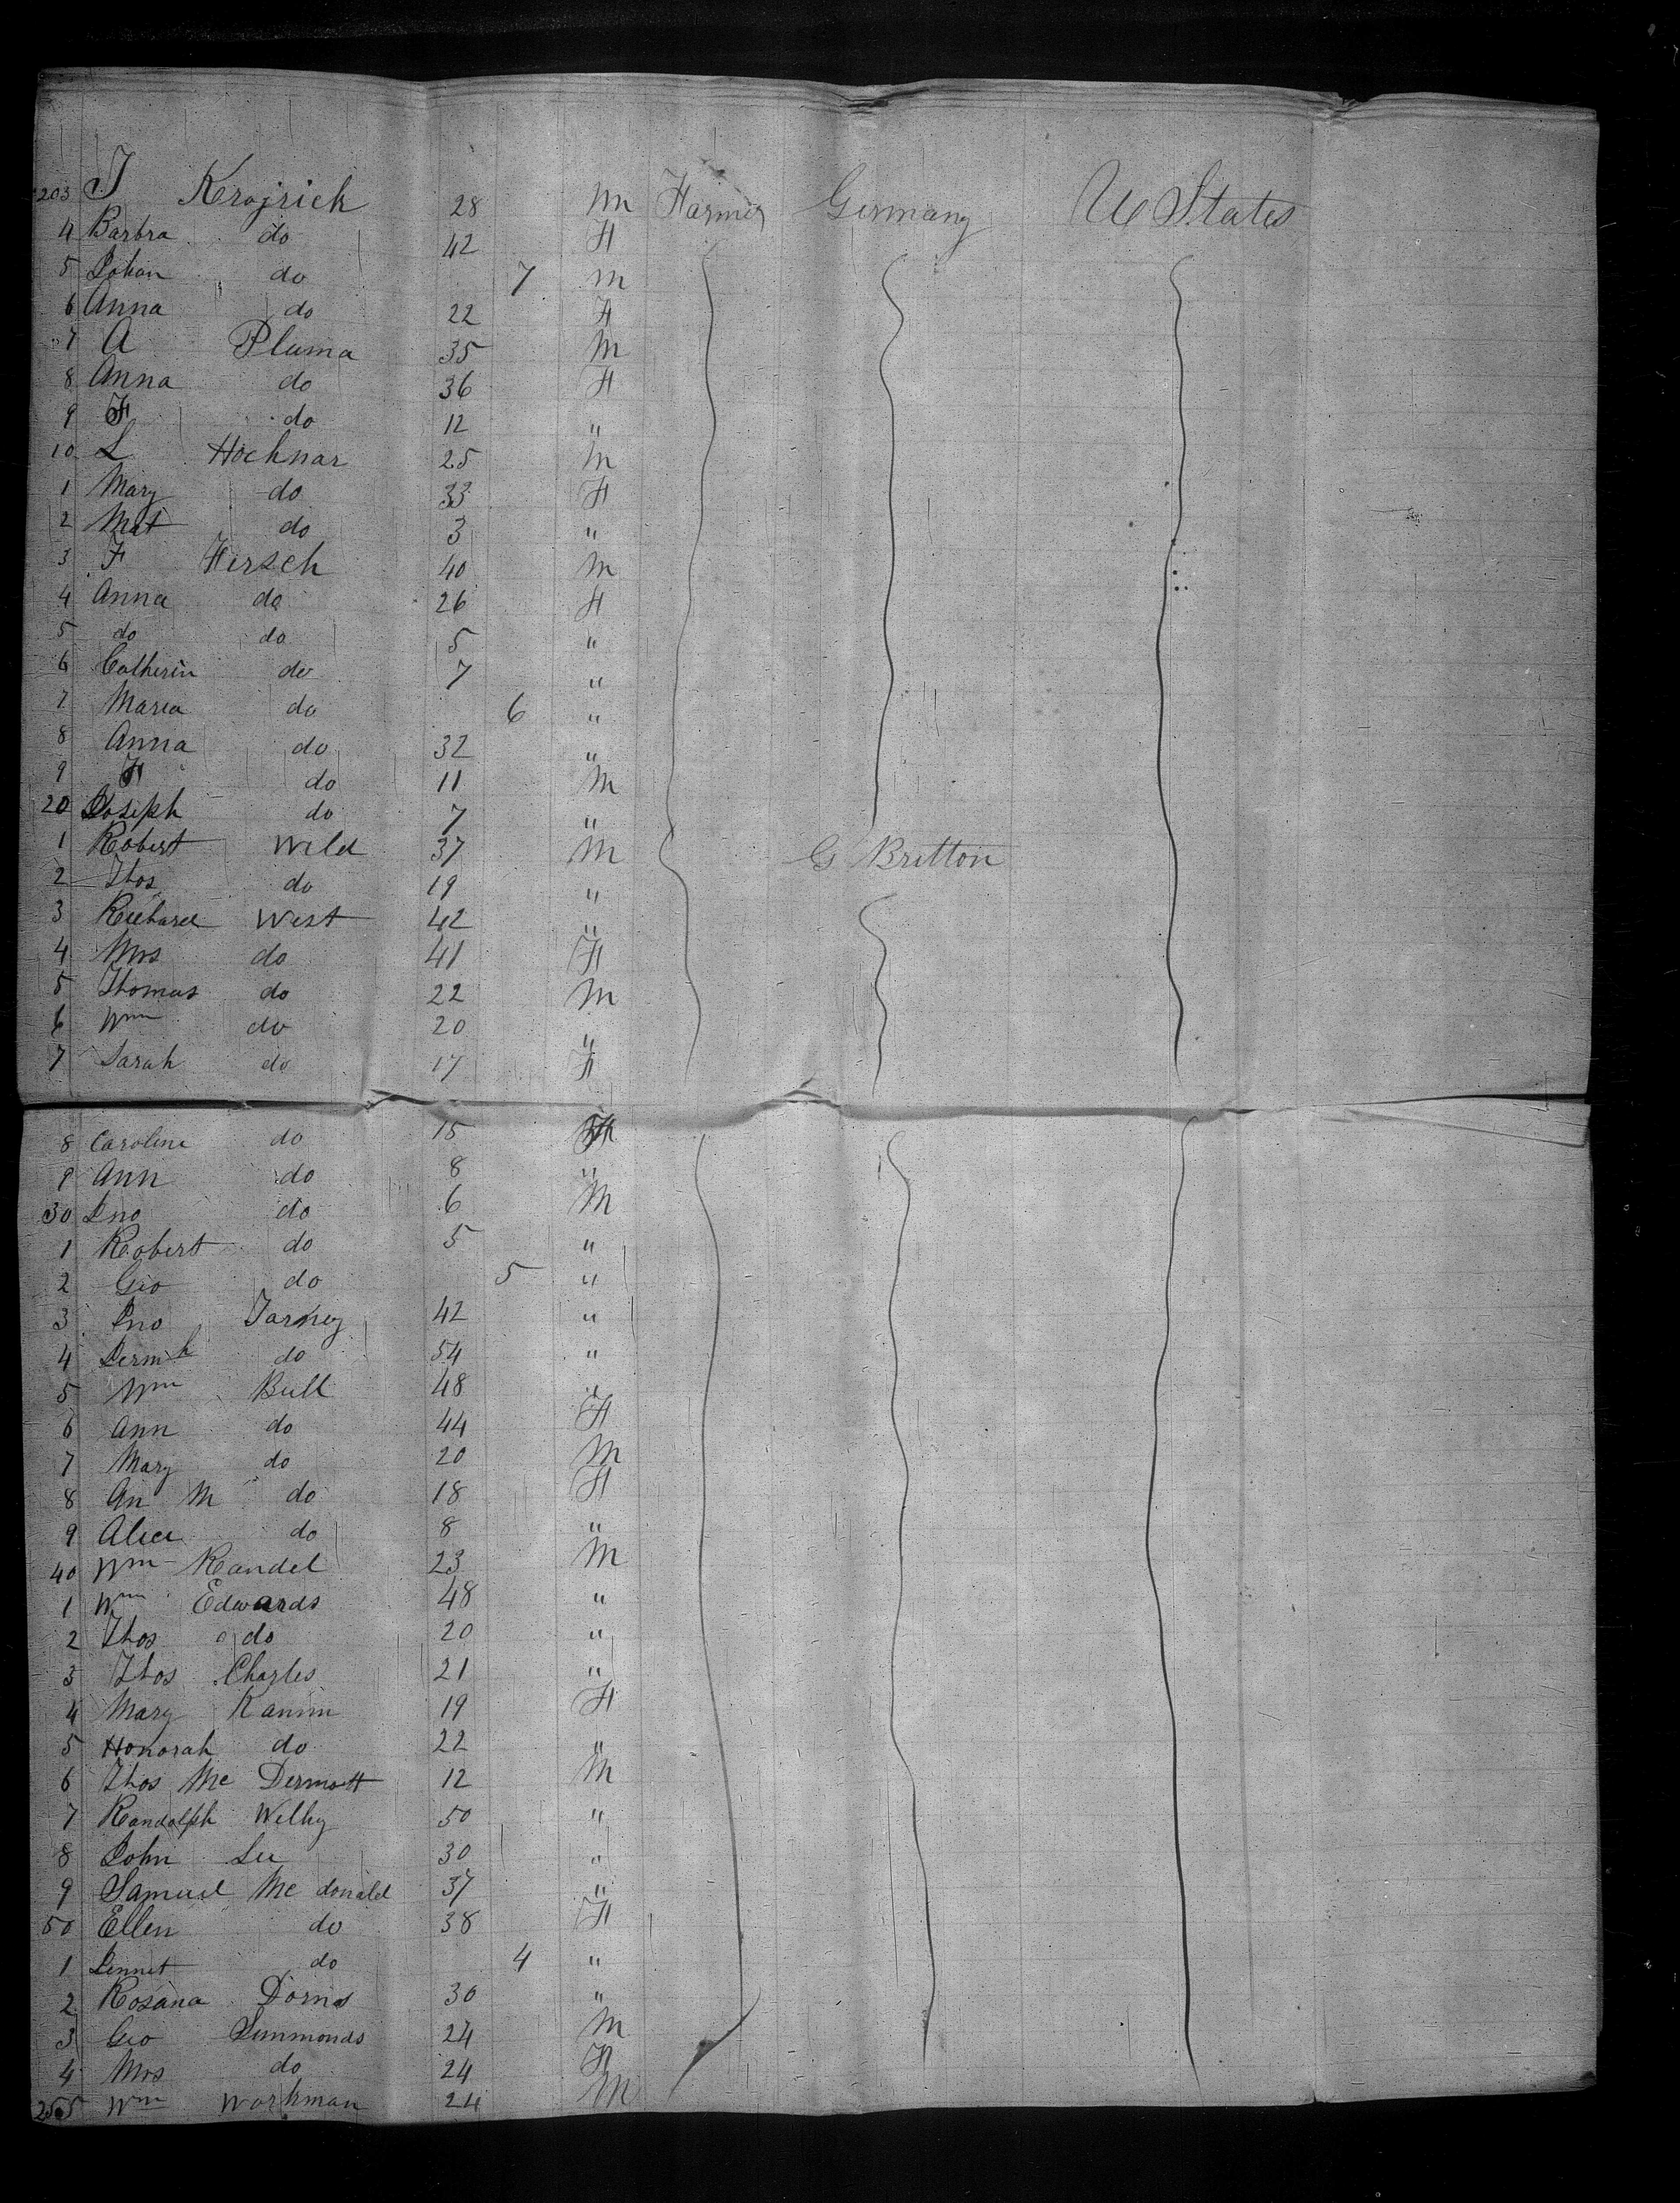 203 J Krajrick 28 M Farmer Germany U States
4 Barbra do 42 F
5 Johan do 7 M
6 Anna do 22 F
7 A Pluma 35 M
8 Anna do 36 F
9 F do 12 "
10 L Hochnar 25 M
1 Mary do 33 F
2 Mat do 3 "
3 F Hersch 40 M
4 Anna do 26 F
5 do do 5 "
6 Catherin do 7 "
7 Maria do 6 "
8 Anna do 32 "
9 F do 11 M
20 Joseph do 7 "
1 Robert Wild 37 M G Britton
2 Thos do 19 "
3 Richard West 42 "
4 Mrs do 41 F
5 Thomas do 22 M
6 Wm do 20 "
7 Sarah do 17 F
8 Caroline do 15 F
9 Ann do 8 "
30 Jno do 6 M
1 Robert do 5 "
2 Geo do 5 "
3 Jno Tarney 42 "
4 do 54 "
5 Wm Bull 48 "
6 Ann do 44 F
7 Mary do 20 M
8 An M do 18 F
9 Alice do 8 "
40 Wm Randel 23 M
1 Wm Edwards 48 "
2 Thos do 20 "
3 Thos Charles 21 "
4 Mary Kanim 19 F
5 Honorah do 22 "
6 Thos Mc Dermott 12 M
7 Randolph Welby 50 "
8 John Lee 30 "
9 Samuel Mc donald 37 "
50 Ellen do 38 F
1 Jennet do 4 "
2 Rosana 30 "
3 Geo Simmonds 24 M
4 Mrs do 24 F
255 Wm Workman 24 M